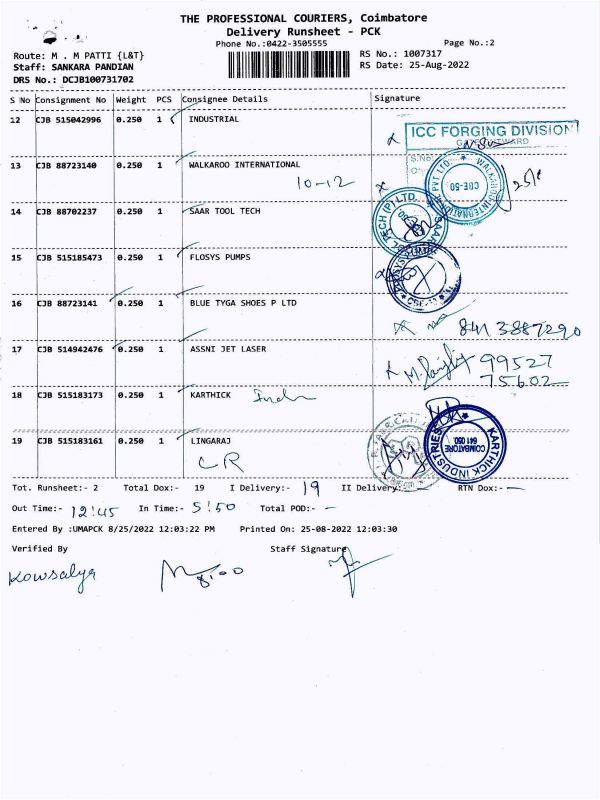 THE PROFESSIONAL COURIERS, Coimbatore
Delivery Runsheet - PCK
Phone No.:0422-3505555 Page No.:2
Route: M . M PATTI {L&T} RS No.: 1007317
Staff: SANKARA PANDIAN RS Date: 25-Aug-2022
DRS No.: DCJB100731702
S No Consignment No Weight PCS Consignee Details Signature
12 CJB 515042996 0.250 1 INDUSTRIAL
ICC FORGING DIVISION
13 CJB 88723140 0.250 1 WALKAROO INTERNATIONAL
10-12
14 CJB 88702237 0.250 1 SAAR TOOL TECH
15 CJB 515185473 0.250 1 FLOSYS PUMPS
16 CJB 88723141 0.250 1 BLUE TYGA SHOES P LTD
8413887290
17 CJB 514942476 0.250 1 ASSNI JET LASER
99527
75602
18 CJB 515183173 0.250 1 KARTHICK
KARTHICK INDUSTRIES
COIMBATORE
641 050
19 CJB 515183161 0.250 1 LINGARAJ
CR
Tot. Runsheet:- 2 Total Dox:- 19 I Delivery:- 19 II Delivery:- — RTN Dox:- —
Out Time:- 12:45 In Time:- 5:50 Total POD:- —
Entered By :UMAPCK 8/25/2022 12:03:22 PM Printed On: 25-08-2022 12:03:30
Verified By Staff Signature
Kowsalya